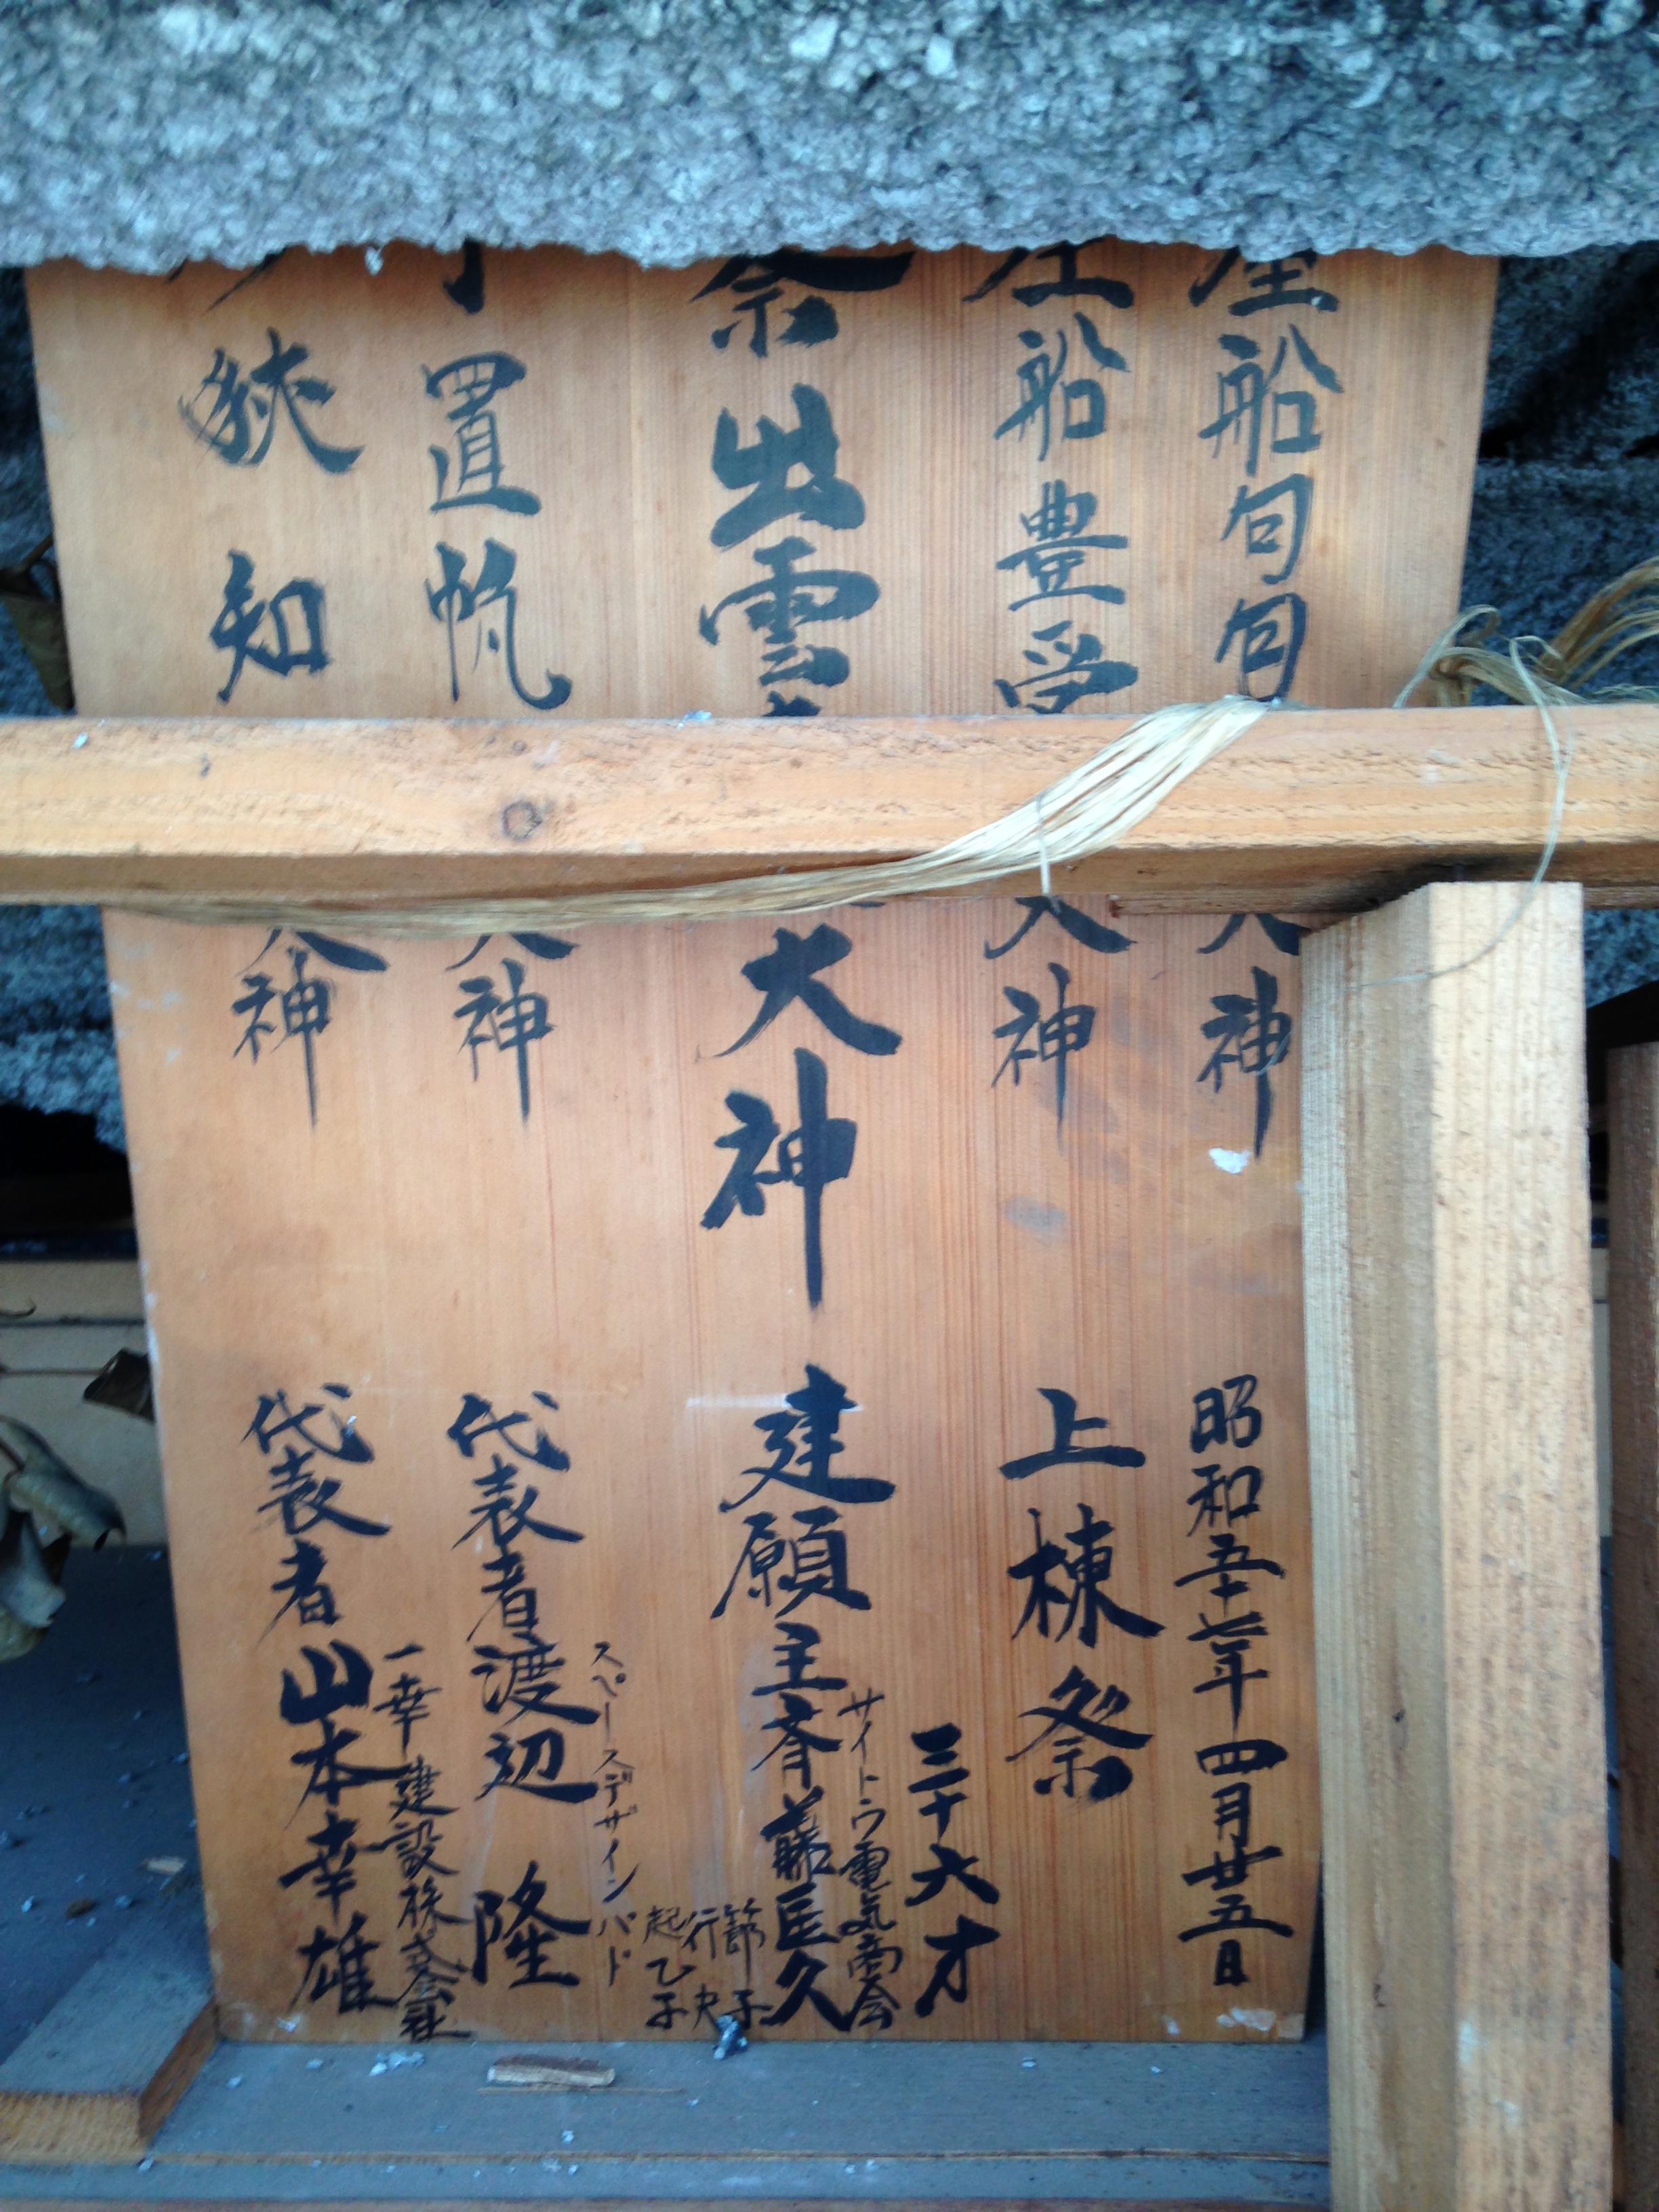 船句句
神
昭和五十七年四月廿五日
船豊受
大神
上棟祭
三十六才
祭出雲
大神
建願主斉藤匡久
サイトウ電気商会
節子
行
起乙子
置帆
大神
代表者渡辺 隆
スペースデザインバド
狭知
大神
代表者山本幸雄
一幸建設株式会社